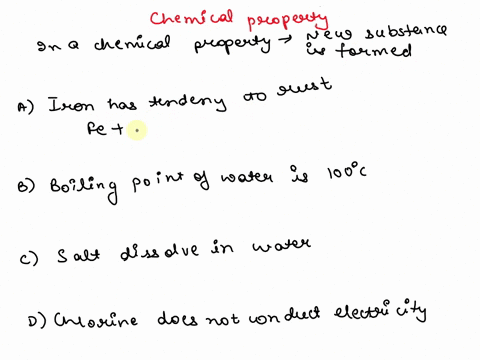 Chemical property
In a chemical property → New substance
is formed
A) Iron has tendeny to rust
Fe +
B) Boiling point of water is 100°C
C) Salt dissolve in water
D) Chlorine does not conduct electricity